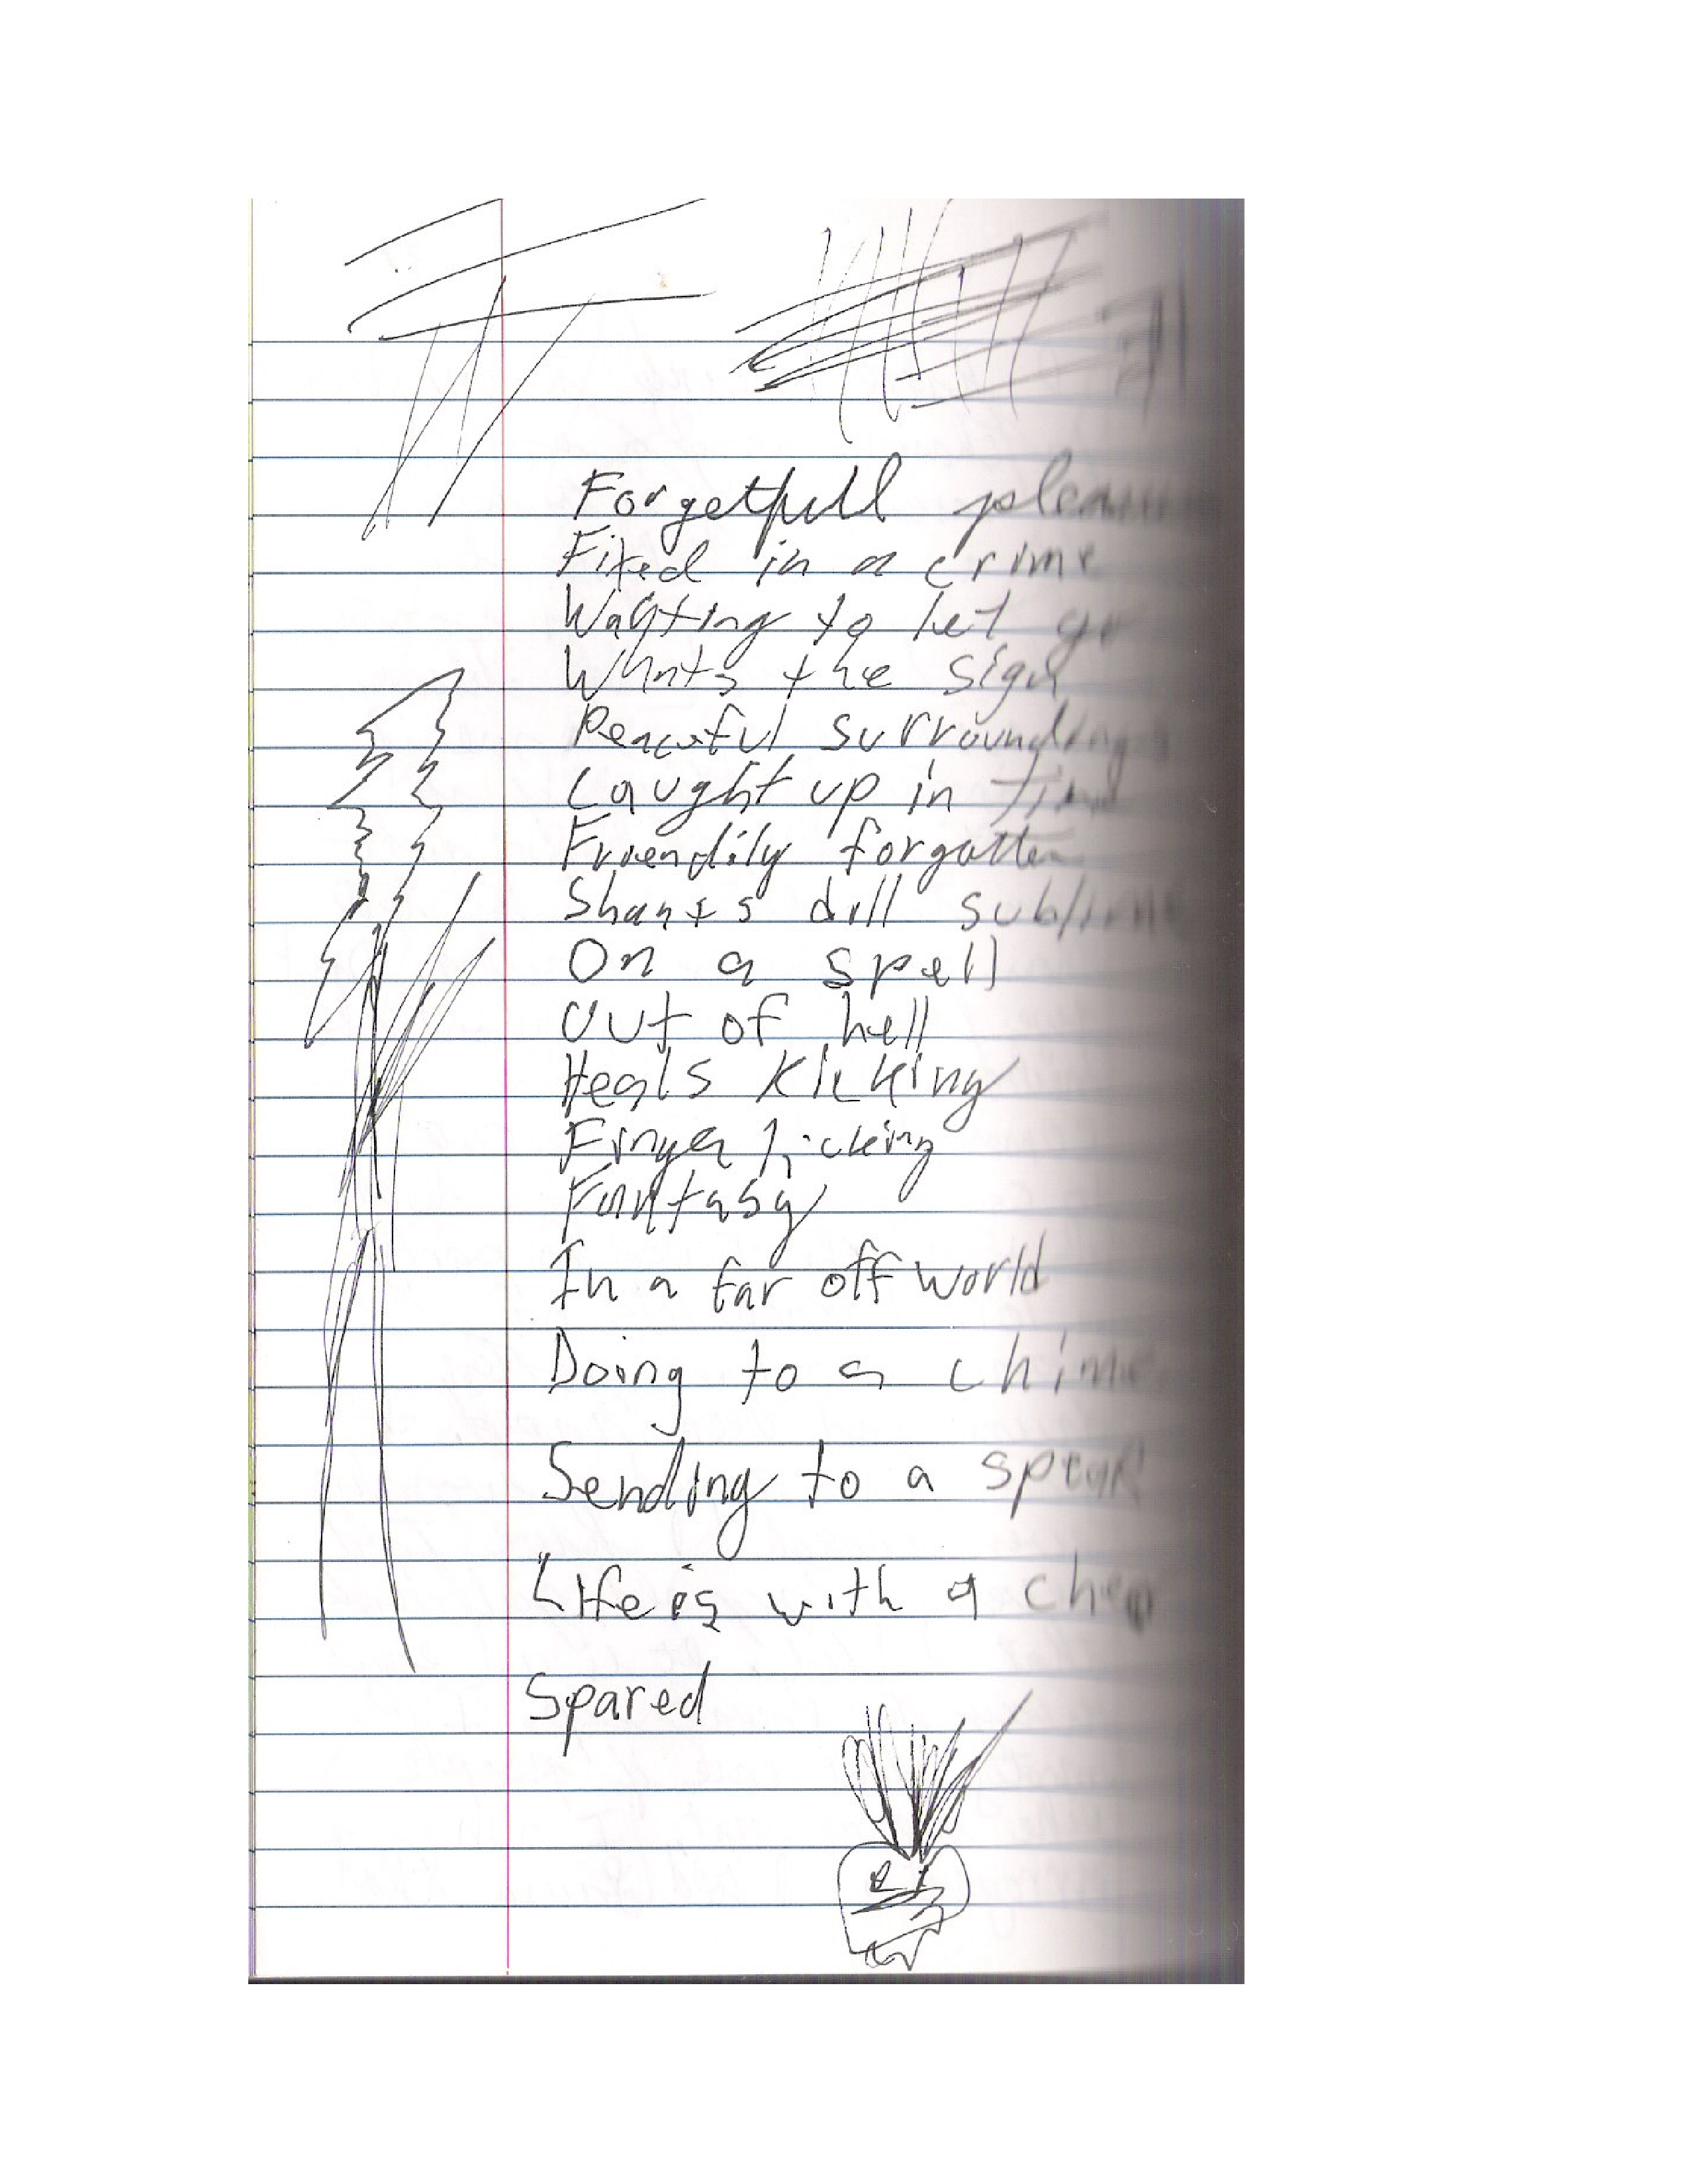 Forgetfull
Fixed in a crime
Waiting to let go
Whnts the sign
Peaceful surroundings
Caught up in time
Friendily forgotten
dill sublime
On a spell
Out of hell
Heals Kicking
Finger licking
Fantasy
In a far off world
Doing to a chime
Sending to a spear
Life is with a
Spared